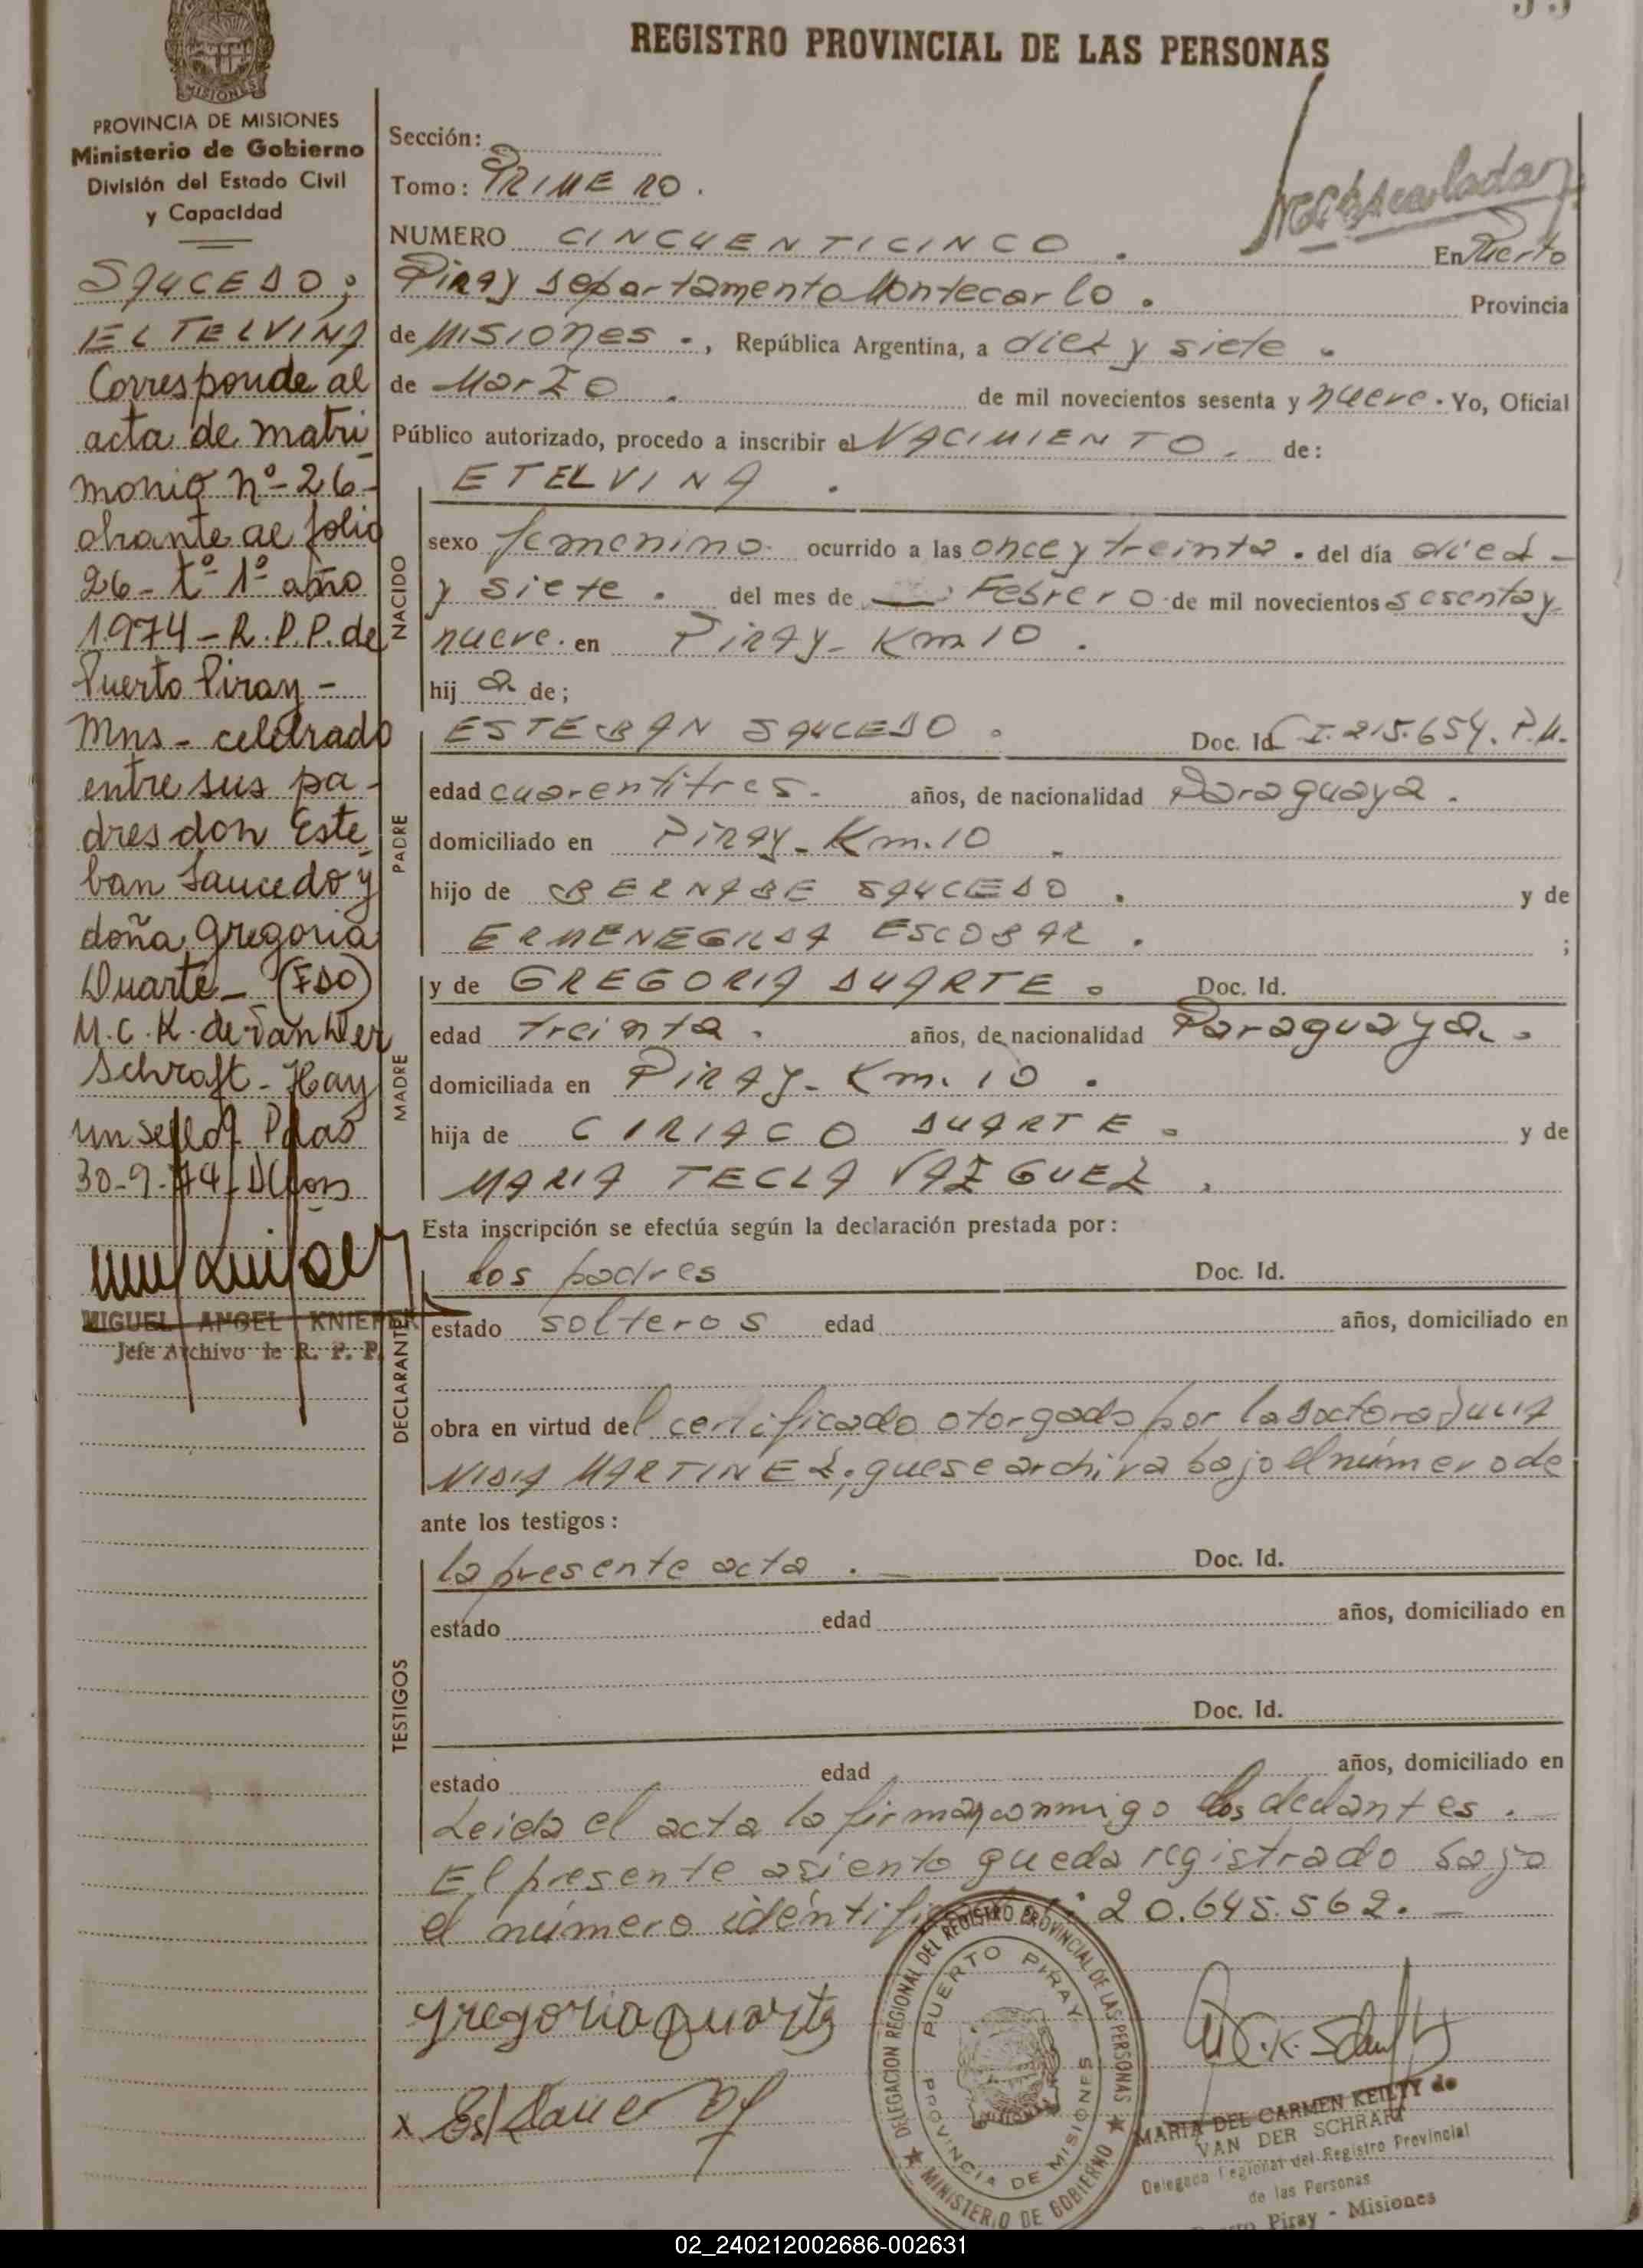 55
REGISTRO PROVINCIAL DE LAS PERSONAS
MISIONES
PROVINCIA DE MISIONES
Ministerio de Gobierno
División del Estado Civil
y Capacidad
SAUCEDO;
ELTELVINA
Corresponde al
acta de matri
monio nº-26-
obrante al folio
26-tº 1º año
1.974-R.P.P. de
Puerto Piray-
Mns-celebrado
entre sus pa-
dres don Este
ban Saucedo y
doña Gregoria
Duarte-(FDO)
M.C.K. de Van Der
Schraft-Hay
un sello Pdas
30-9-74-
MIGUEL ANGEL KNIEPER
Jefe Archivo de R. P. P.
Sección:
Tomo: PRIMERO.
NUMERO CINCUENTICINCO. En Puerto
Piray departamento Montecarlo. Provincia
de Misiones., República Argentina, a diez y siete.
de Marzo. de mil novecientos sesenta y nueve. Yo, Oficial
Público autorizado, procedo a inscribir el NACIMIENTO. de:
NACIDO
ETELVINA.
sexo femenino. ocurrido a las once y treinta. del día diez-
y siete. del mes de Febrero de mil novecientos sesenta y
nueve. en Piray-Km 10.
hij a de;
PADRE
ESTEBAN SAUCEDO. Doc. Id. C I. 215.654. P.M.
edad cuarentitres. años, de nacionalidad Paraguaya.
domiciliado en Piray-Km.10
hijo de BERNABE SAUCEDO. y de
ERMENEGILDA ESCOBAR. ;
MADRE
y de GREGORIA DUARTE. Doc. Id.
edad treinta. años, de nacionalidad Paraguaya.
domiciliada en Piray-Km.10.
hija de CIRIACO DUARTE. y de
MARIA TECLA VAZGUEZ.
Esta inscripción se efectúa según la declaración prestada por:
DECLARANTE
los padres Doc. Id.
estado solteros edad años, domiciliado en
obra en virtud del certificado otorgado por la doctora
NIDIA MARTINEZ; que se archiva bajo el número de
ante los testigos:
TESTIGOS
la presente acta. Doc. Id.
estado edad años, domiciliado en
Doc. Id.
estado edad años, domiciliado en
Leida el acta la firman conmigo los declantes.
El presente asiento queda registrado bajo
el número : 20.645.562.-
Gregoria Duarte
DELEGACION REGIONAL DEL REGISTRO PROVINCIAL DE LAS PERSONAS
MINISTERIO DE GOBIERNO
PUERTO PIRAY
PROVINCIA DE MISIONES
MISIONES
MARIA DEL CARMEN KEILTY de
VAN DER SCHRAFT
Delegado Regional del Registro Provincial
de las Personas
Piray - Misiones
02_240212002686-002631